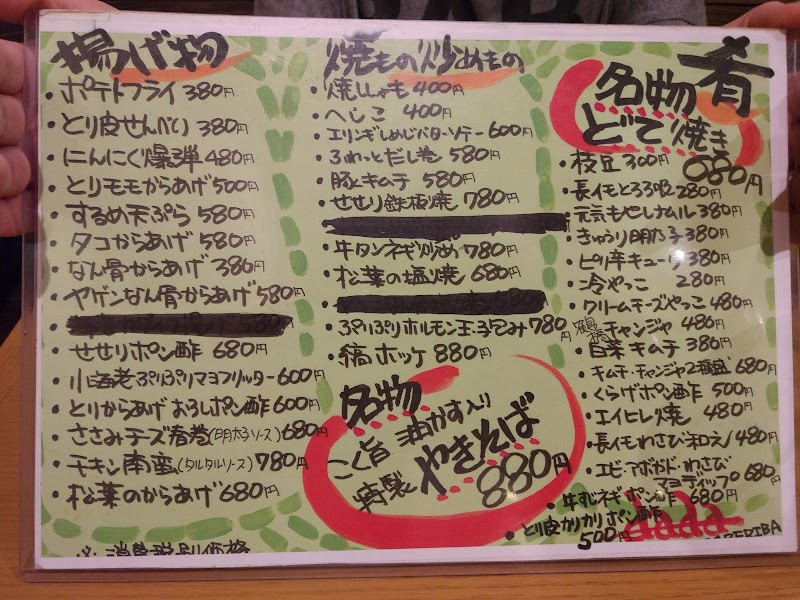 揚げ物
・ポテトフライ 380円
・とり皮せんべい 380円
・にんにく爆弾 480円
・とりモモからあげ 500円
・するめ天ぷら 580円
・タコからあげ 580円
・なん骨からあげ 380円
・ヤゲンなん骨からあげ 580円
・せせりポン酢 680円
・小海老ぷりぷりマヨフリッター 600円
・とりからあげおろしポン酢 600円
・ささみチーズ春巻(明太子ソース) 680円
・チキン南蛮(タルタルソース) 780円
・松葉のからあげ 680円
※消費税別価格
焼もの炒めもの
・焼ししゃも 400円
・へしこ 400円
・エリンギしめじバターソテー 600円
・ふわっとだし巻 580円
・豚とキムチ 580円
・せせり鉄板焼 780円
・牛タンネギ炒め 780円
・松葉の塩焼 680円
・ぷりぷりホルモン玉子包み 780円
・縞ホッケ 880円
名物
こく旨 油かす入り
特製 やきそば
880円
肴
名物
どて焼き
680円
・枝豆 300円
・長イモとろろ 280円
・元気もやしナムル 380円
・きゅうり明太子 380円
・ピリ辛キューリ 380円
・冷やっこ 280円
・クリームチーズやっこ 480円
・チャンジャ 480円
・白菜キムチ 380円
・キムチ・チャンジャ2種盛 680円
・くらげポン酢 500円
・エイヒレ焼 480円
・長イモわさび和え 480円
・エビ・アボガド・わさび
マヨディップ 680円
・牛すじネギポン酢 680円
・とり皮カリカリポン酢
500円